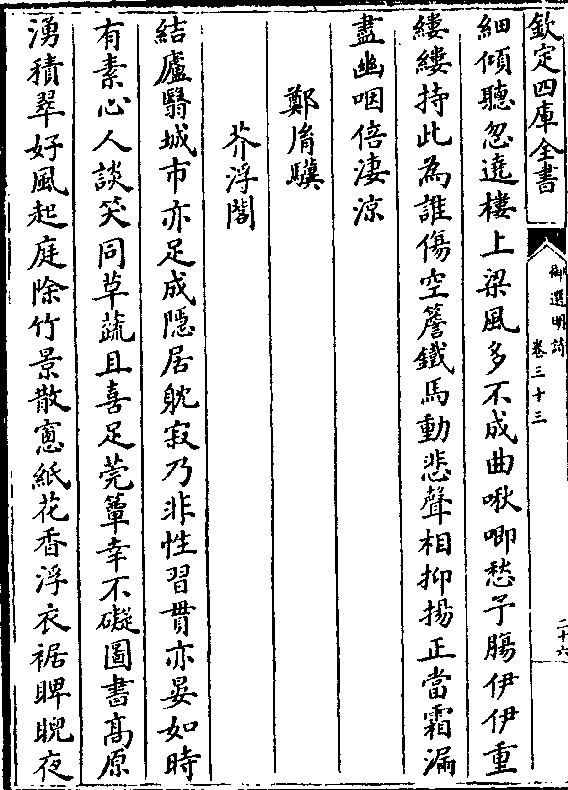 欽定四庫全書
御選明詩
卷三十三
二十六
細傾聽忽遶樓上梁風多不成曲啾唧愁予腸伊伊重
縷縷持此為誰傷空簷鐵馬動悲聲相抑揚正當霜漏
盡幽咽倍淒涼
鄭胤驥
芥浮閣
結廬翳城市亦足成隱居躭寂乃非性習貫亦晏如時
有素心人談笑同草蔬且喜足莞簟幸不礙圖書高原
湧積翠好風起庭除竹景散窻紙花香浮衣裾睥睨夜